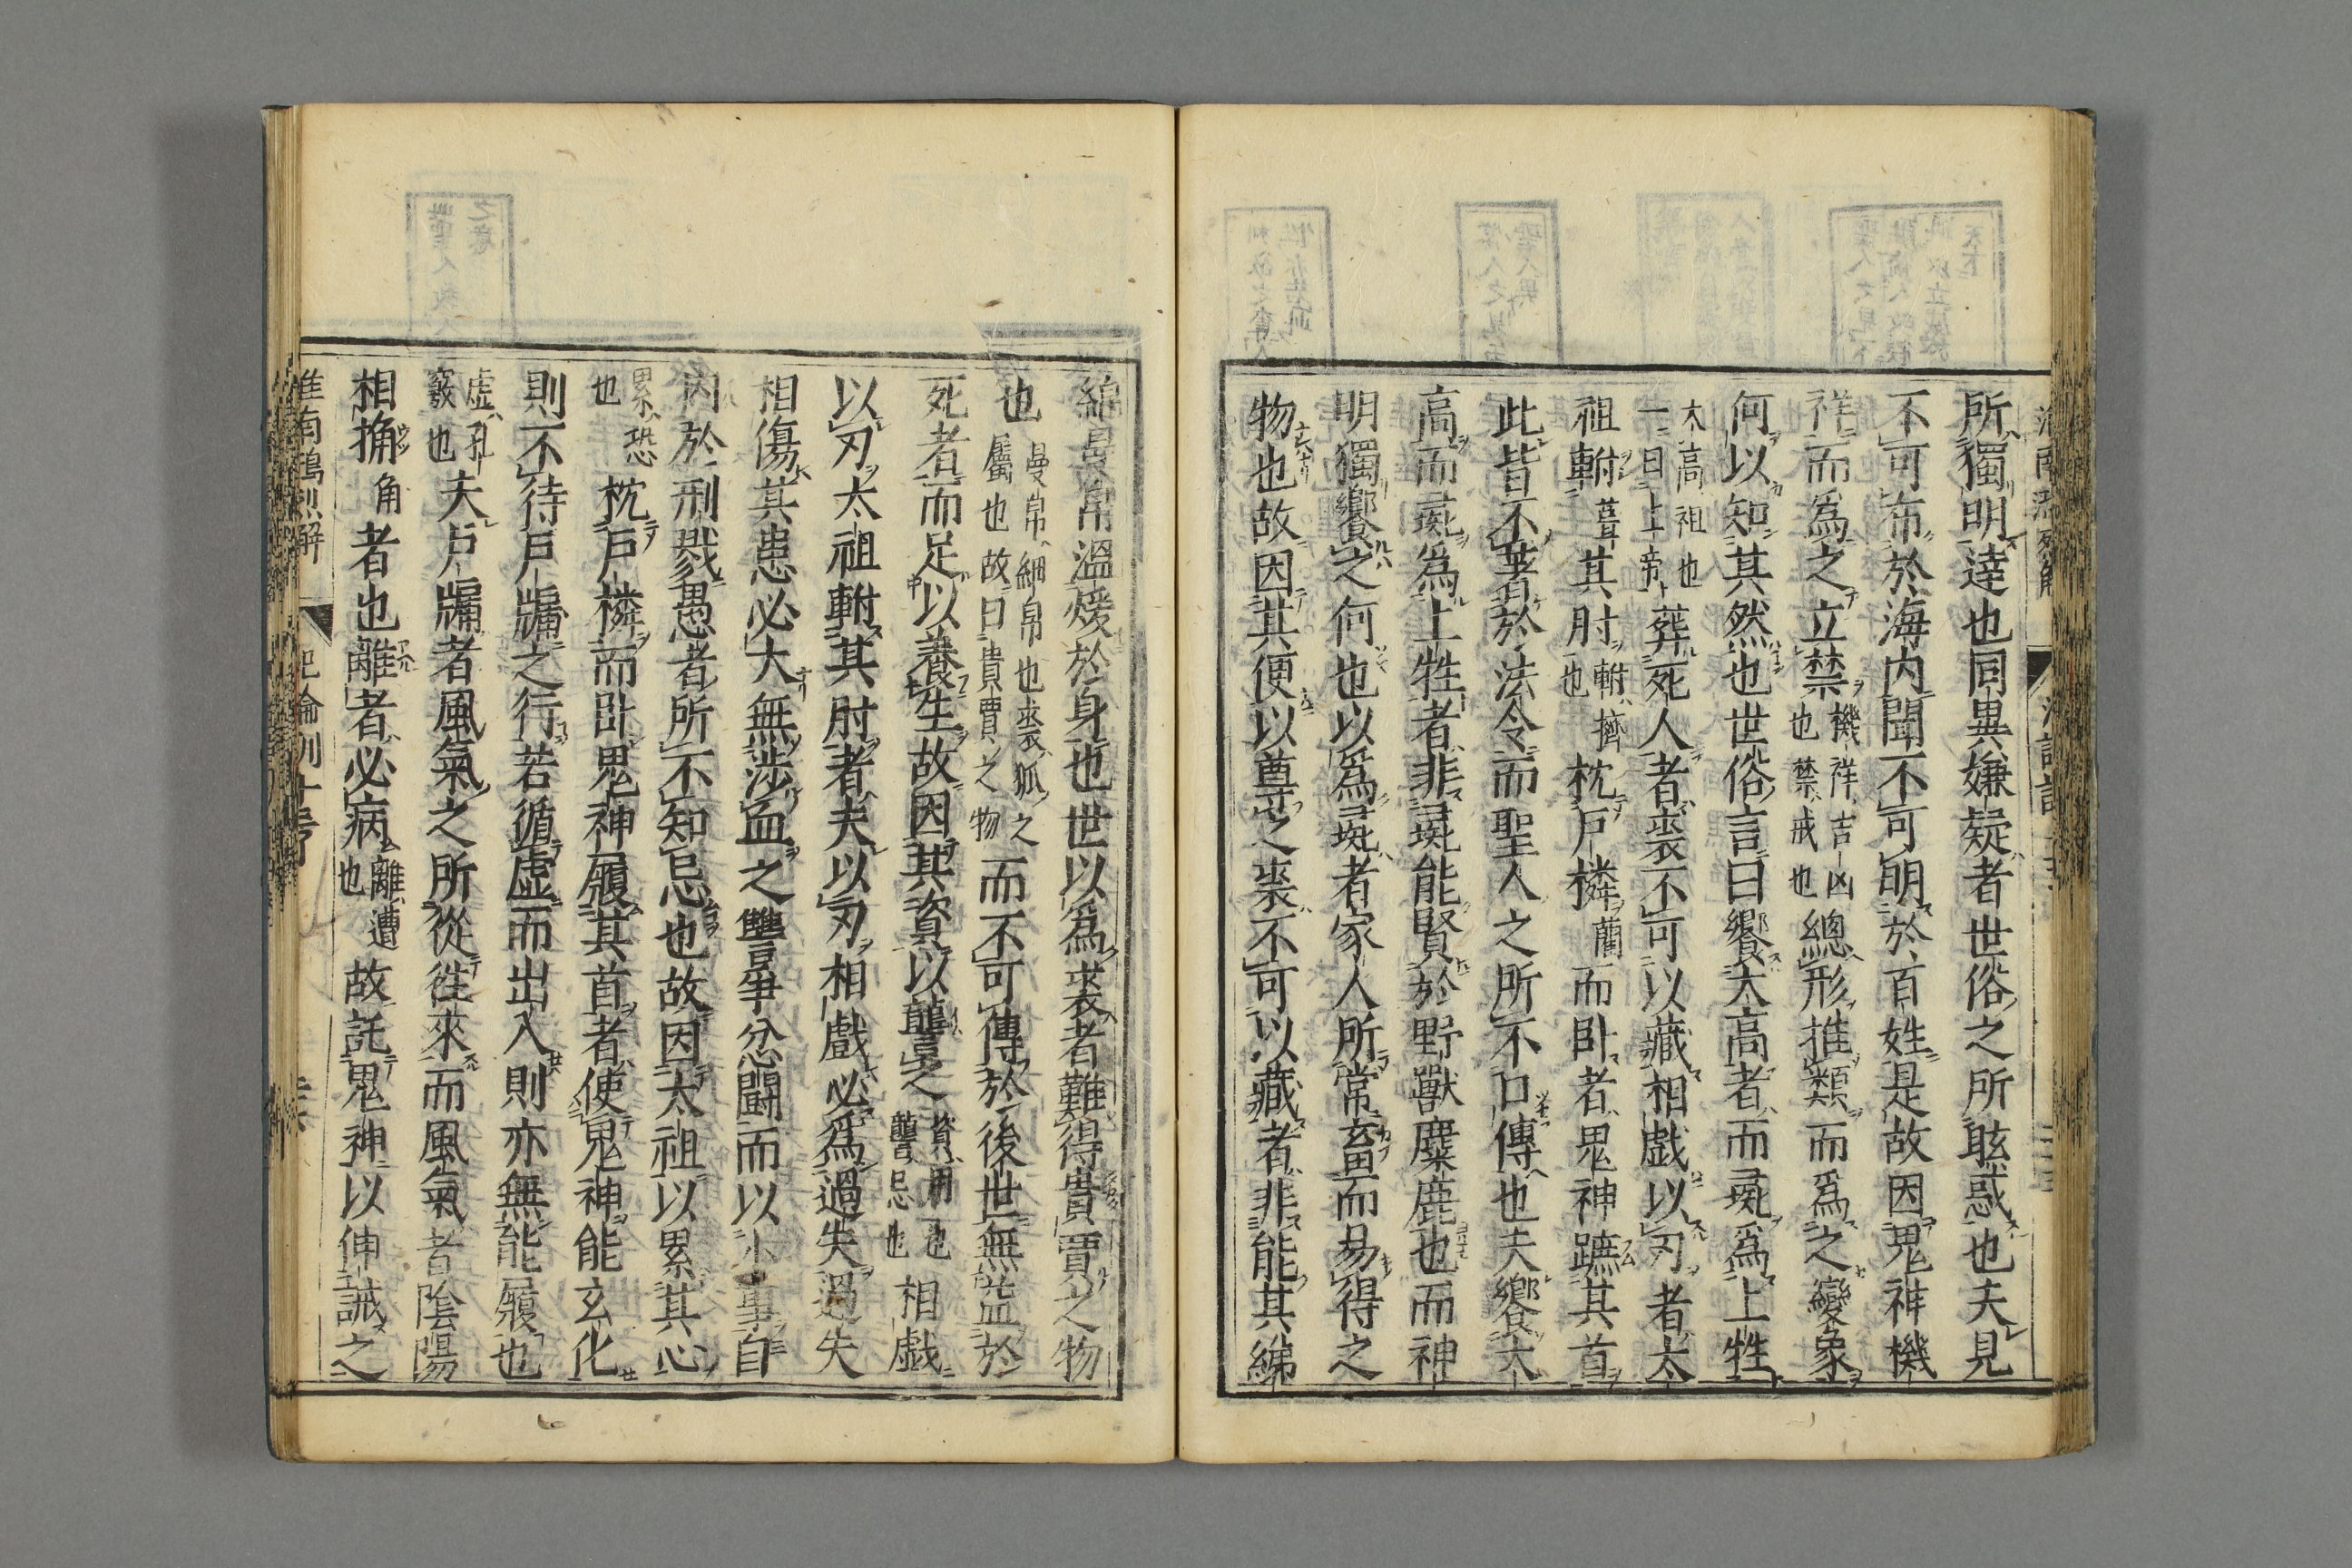 所獨明達也同異嫌疑者世俗之所眩惑也夫見
不可布於海内聞不可明於百姓是故因鬼神機
祥而爲之立禁機祥吉凶也禁戒也總形推類而爲之變象
何以知其然也世俗言曰饗大高者而彘爲上牲
大高祖也一曰上帝葬死人者裘不可以藏相戲以刃者太
祖軵其肘軵擠也枕戶橉而臥者鬼神蹠其首
此皆不著於法令而聖人之所不口傳也夫饗大
高而彘爲上牲者非彘能賢於野獸麋鹿也而神
明獨饗之何也以爲彘者家人所常畜而易得之
物也故因其便以尊之裘不可以藏者非能其綈
綿曼帛溫煖於身也世以爲裘者難得貴賈之物
也曼帛細帛也裘狐之屬也故曰貴賈之物而不可傳於後世無益於
死者而足以養生故因其資以讋之資用也讋忌也相戲
以刃太祖軵其肘者夫以刃相戲必爲過失過失
相傷其患必大無涉血之讐爭忿鬪而以小事自
内於刑戮愚者所不知忌也故因太祖以累其心
累恐也枕戶橉而臥鬼神履其首者使鬼神能玄化
則不待戶牖之行若循虛而出入則亦無能履也
虛孔竅也夫戶牖者風氣之所從徃來而風氣者陰陽
相捔角者也離者必病離遭也故託鬼神以伸誡之